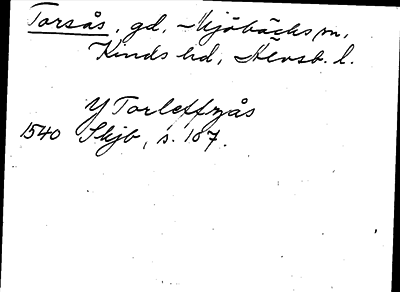 Torsås, gd, Mjöbäcks sn,
Kinds hd, Älvsb. l.
Y Torleffzås
1540 Skjb, s. 107.